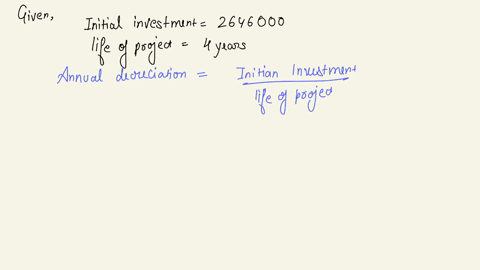 Given,
Initial investment = 2646000
life of project = 4 years
Annual depreciation = Initian Investment
life of project